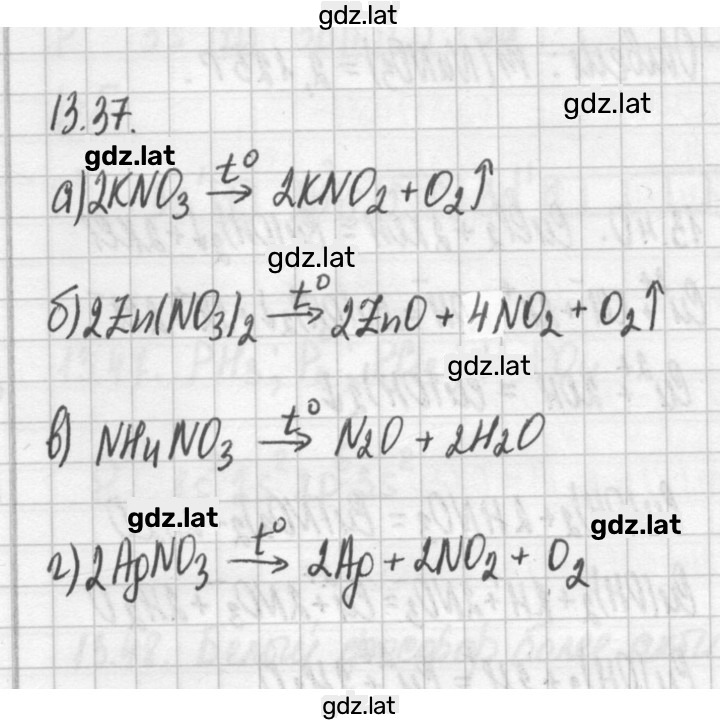 gdz.lat
gdz.lat
13.37.
gdz.lat
а) 2KNO₃ →t⁰ 2KNO₂ + O₂↑
gdz.lat
б) 2Zn(NO₃)₂ →t⁰ 2ZnO + 4NO₂ + O₂↑
gdz.lat
в) NH₄NO₃ →t⁰ N₂O + 2H₂O
gdz.lat
gdz.lat
г) 2AgNO₃ →t⁰ 2Ag + 2NO₂ + O₂
gdz.lat